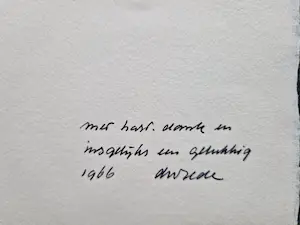 met hart. dank en
insgelijks een gelukkig
1966